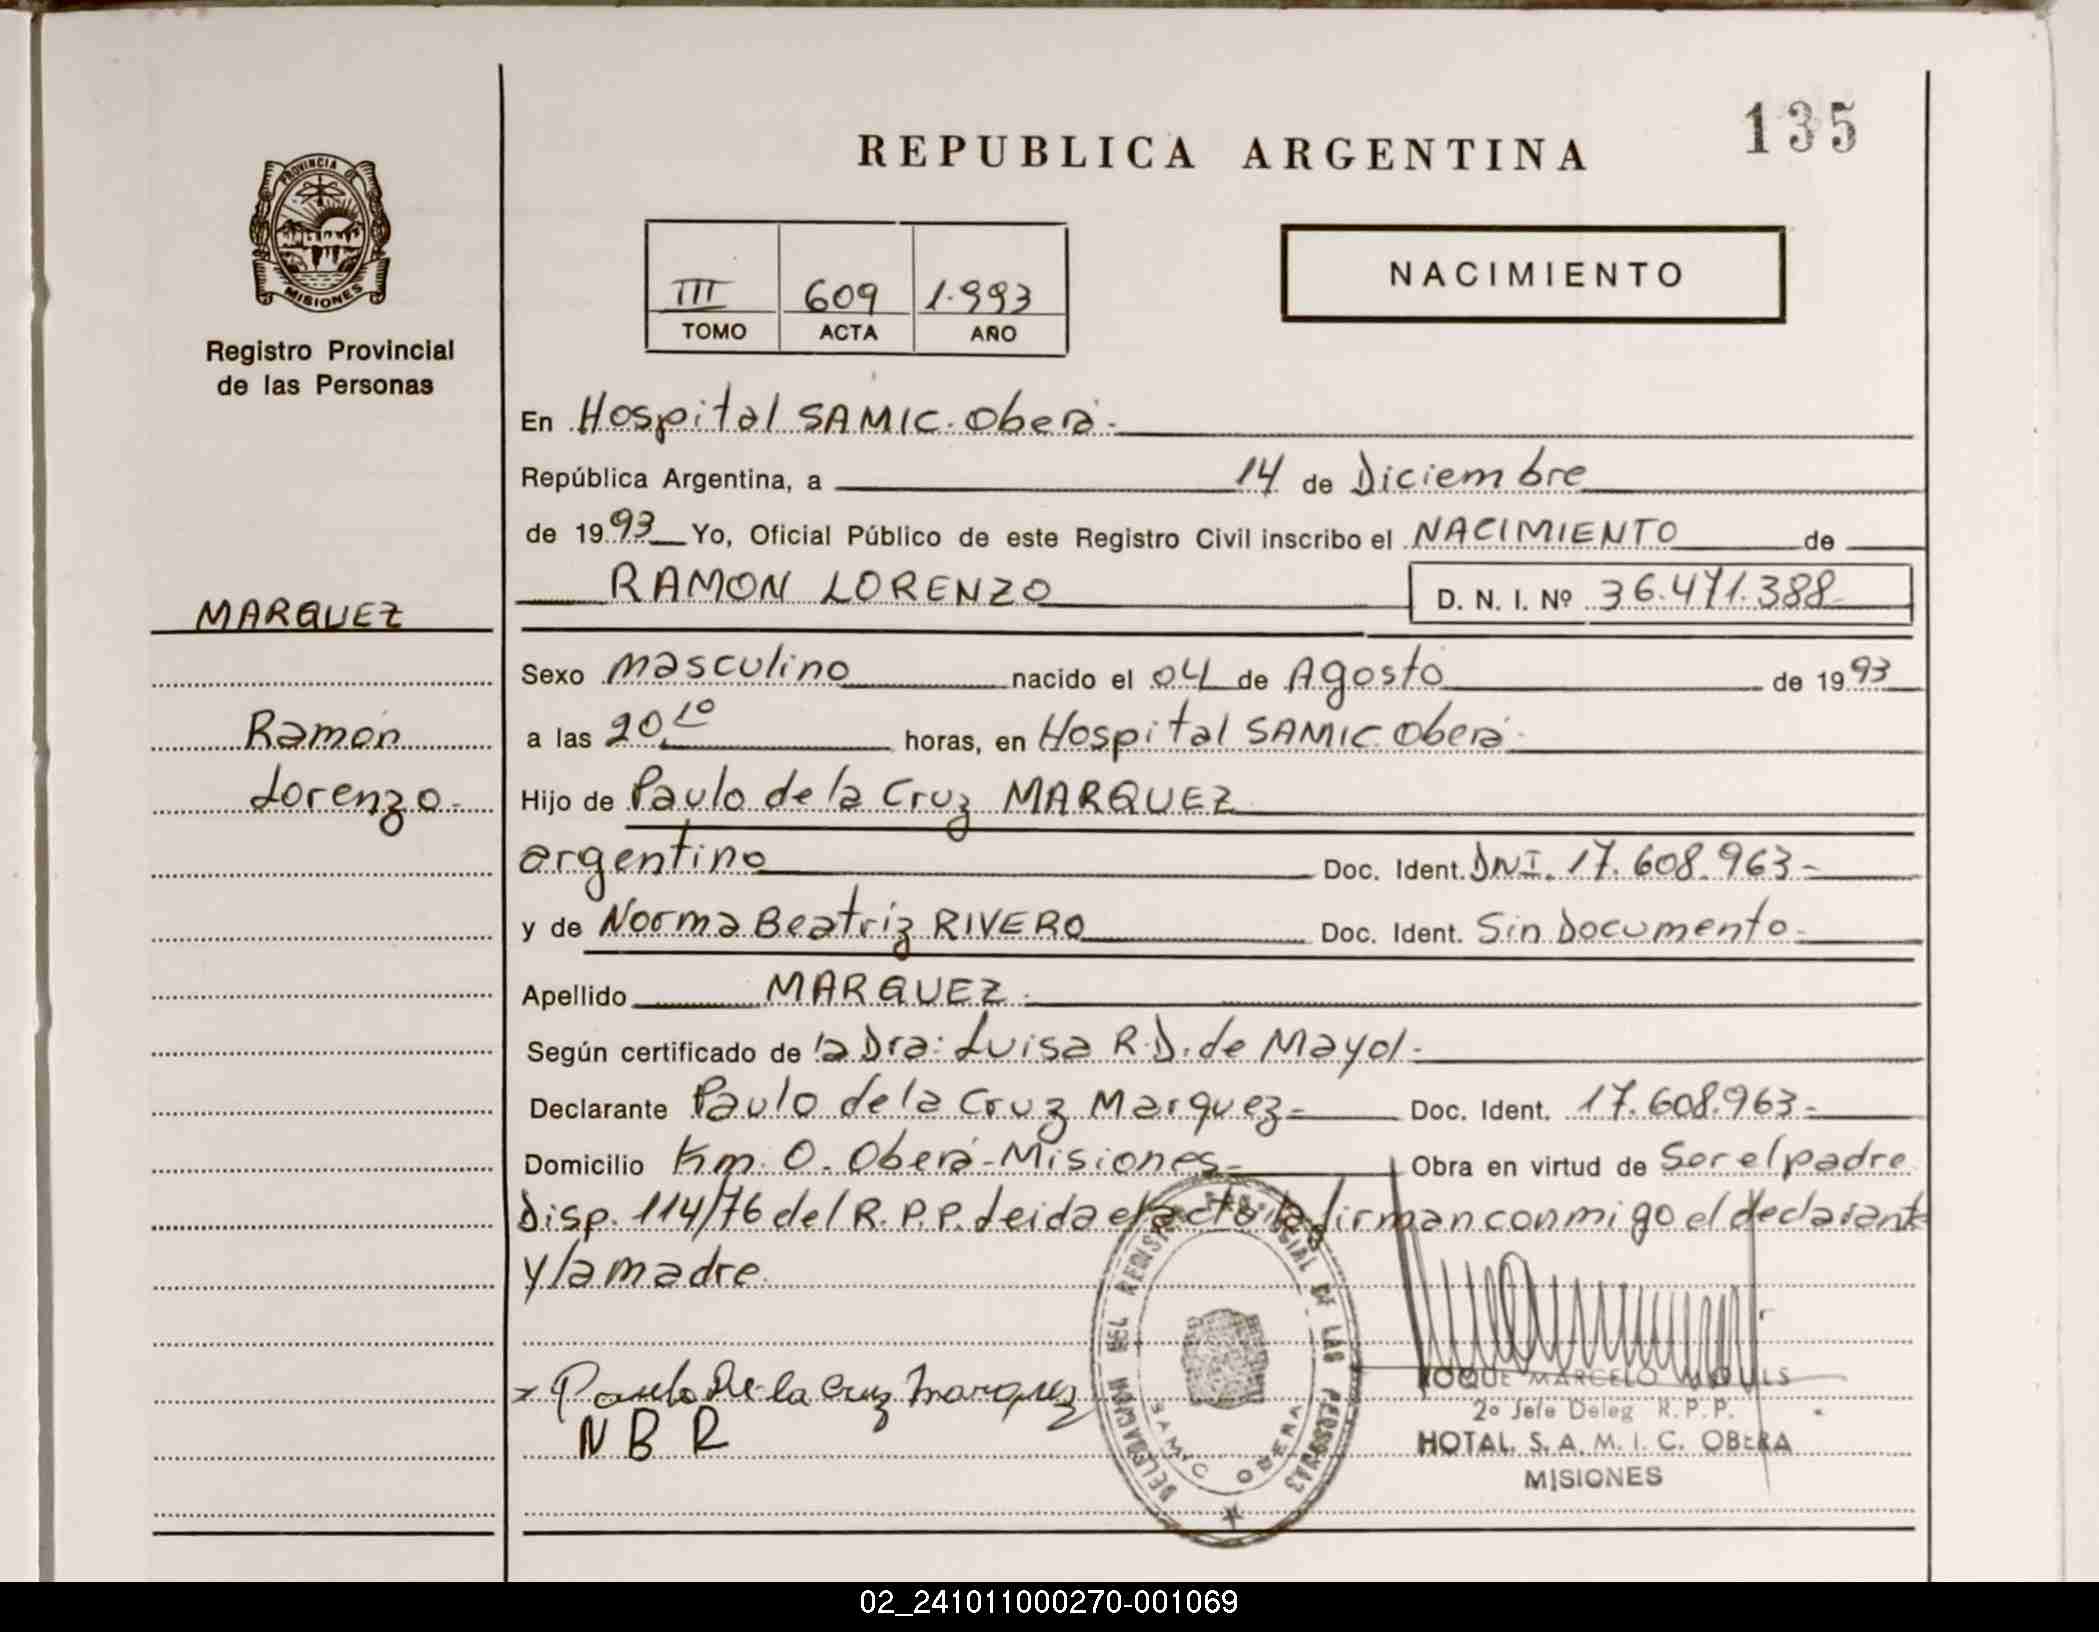 135
REPUBLICA ARGENTINA
PROVINCIA DE
MISIONES
Registro Provincial
de las Personas
III 609 1.993
TOMO ACTA AÑO
NACIMIENTO
En Hospital SAMIC. Oberá.
República Argentina, a 14 de Diciembre
de 19 93 Yo, Oficial Público de este Registro Civil inscribo el NACIMIENTO de
MARQUEZ
RAMON LORENZO D. N. I. Nº 36.471.388
Sexo masculino nacido el 04 de Agosto de 19 93
Ramón
Lorenzo.-
a las 20,10 horas, en Hospital SAMIC. Oberá.
Hijo de Paulo de la Cruz MARQUEZ
argentino Doc. Ident. DNI. 17.608.963-
y de Norma Beatriz RIVERO Doc. Ident. Sin Documento-
Apellido MARQUEZ.
Según certificado de la Dra: Luisa R.D. de Mayol.-
Declarante Paulo de la Cruz Marquez- Doc. Ident. 17.608.963-
Domicilio Km. 0. Oberá-Misiones- Obra en virtud de Ser el padre
Disp. 114/76 del R.P.P. Leida el acta la firman conmigo el declarante
y la madre.
x Paulo De la Cruz Marquez
N B R
DELEGACION DEL REGISTRO PROVINCIAL DE LAS PERSONAS
SAMIC OBERA
ROQUE MARCELO
2º Jefe Deleg R.P.P.
HOTAL. S. A. M. I. C. OBERA
MISIONES
02_241011000270-001069